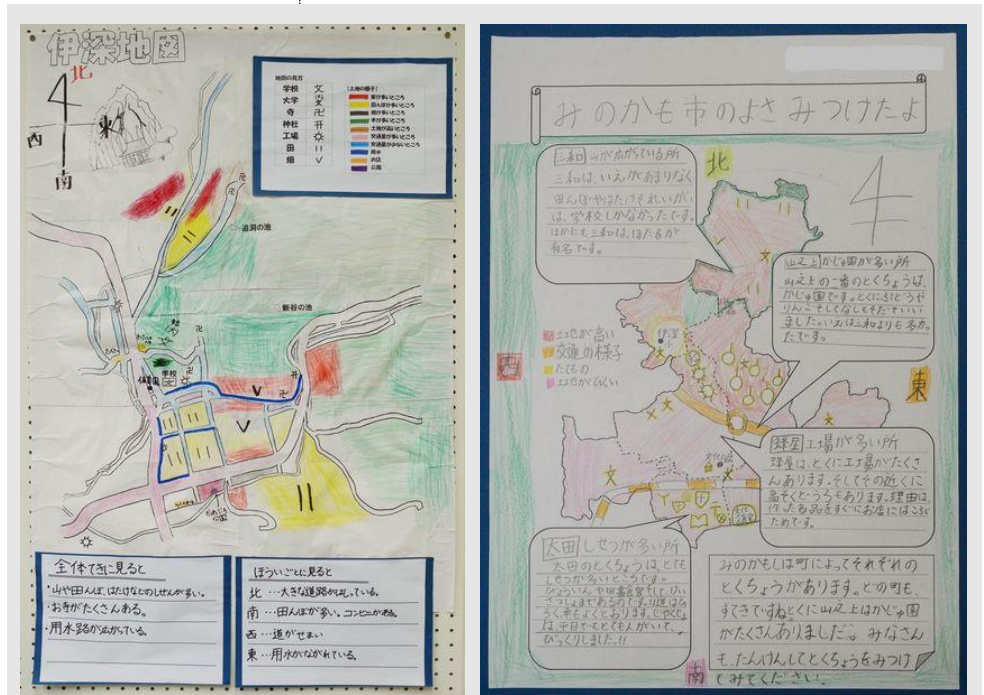 伊深地図
北
東
西
南
地図の見方
学校 文
大学
寺 卍
神社
工場
田 II
畑 V
[土地の様子]
家が多いところ
田んぼが多いところ
畑が多いところ
木が多いところ
土地が高いところ
交通量が多いところ
交通量が少ないところ
用水
お店
公園
追洞の池
新谷の池
学校
公園
全体てきに見ると
・山や田んぼ、はたけなどのしぜんが多い。
・お寺がたくさんある。
・用水路が広がっている。
ほういごとに見ると
北…大きな道路がはしっている。
南…田んぼが多い。コンビニがある。
西…道がせまい
東…用水がながれている。
みのかも市のよさみつけたよ
三和 山が広がっている所
三和は、いえがあまりなく
田んぼやはたけそれいがい
は、学校しかなかったです。
ほかにも三和は、ほたるが
有名です。
北
山之上 かじゅ園が多い所
山之上の一番のとくちょうは、
かじゅ園です。とくにぶどうや
りんごそしてなしもそだてていい
ました。いえは三和よりも多かっ
たです。
伊深
土地が高い
交通の様子
たてもの
土地がひくい
西
東
文化の森
蜂屋 工場が多い所
蜂屋は、とくに工場がたくさ
んあります。そしてその近くに
高そくどうろもあります。理由は、
作った商品をすぐにお店にはこぶ
ためです。
太田 しせつが多い所
太田のとくちょうは、とても
しせつが多いところです。
びっくりしました!!
みのかもしは町によってそれぞれの
とくちょうがあります。どの町も
すてきですねとくに山之上はかじゅ園
がたくさんありました。みなさん
も、たんけんしてとくちょうをみつけ
てみてください。
南